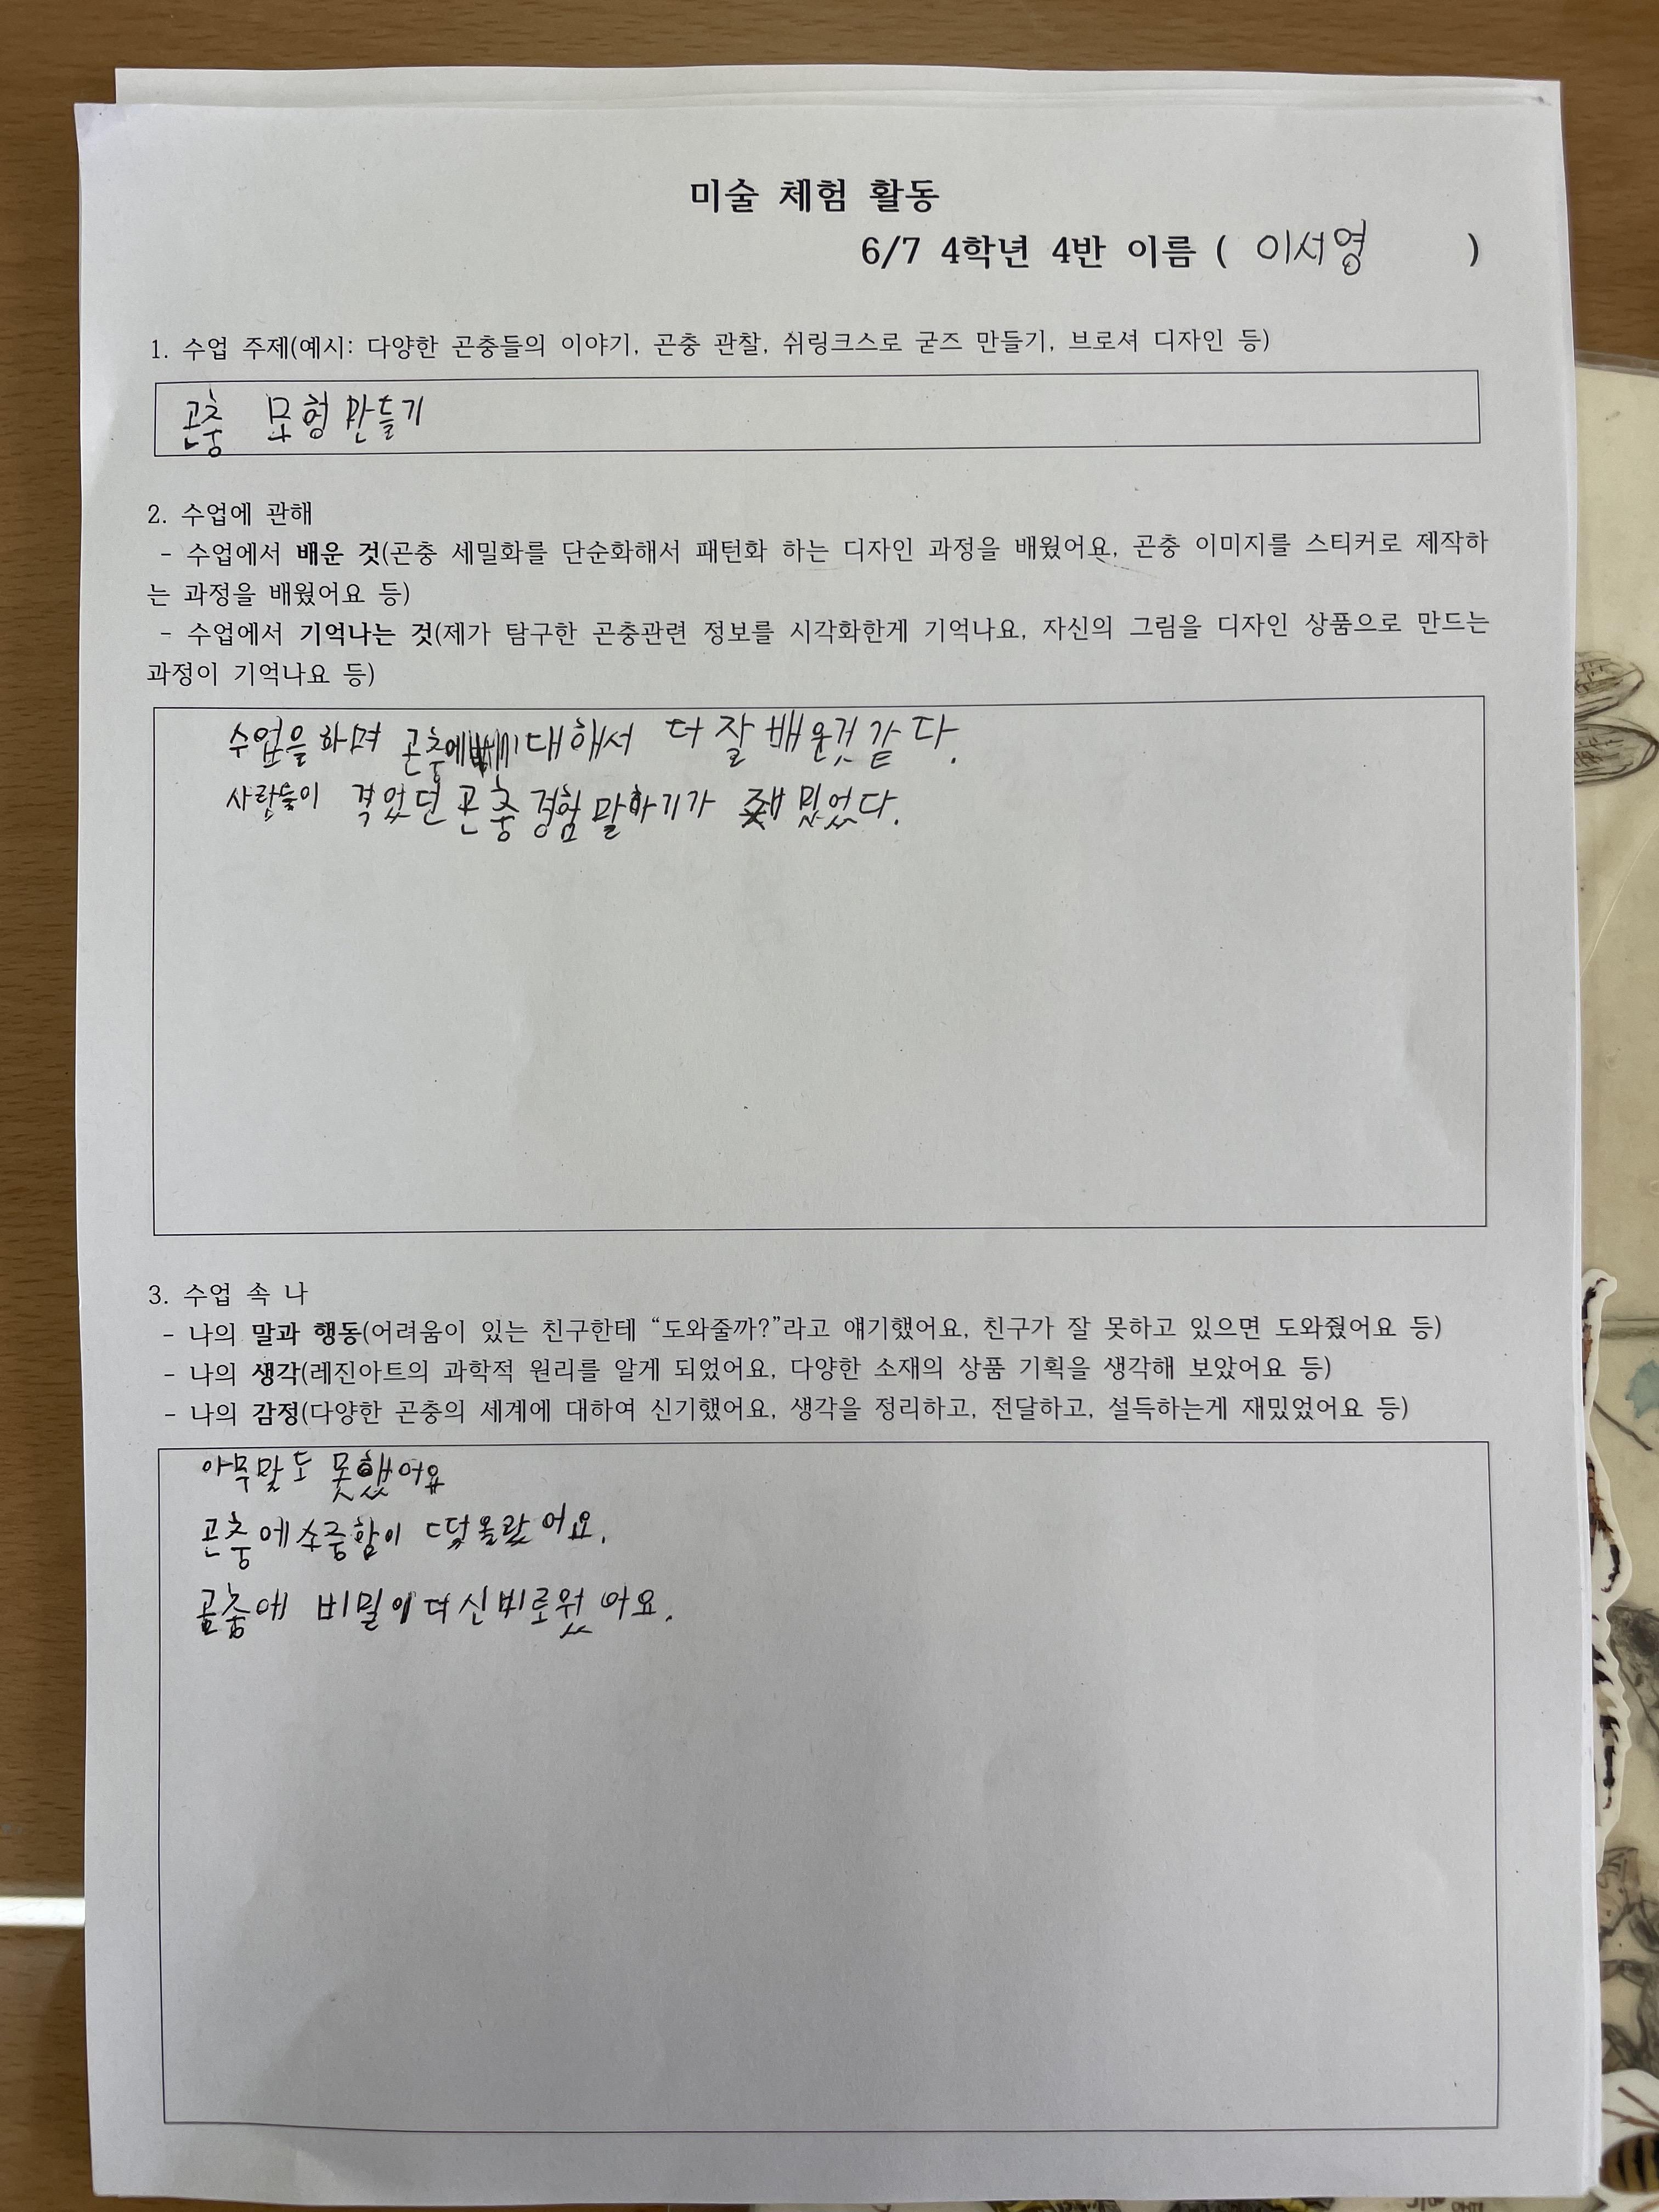 미술 체험 활동
6/7 4학년 4반 이름 ( 이서영 )
1. 수업 주제(예시: 다양한 곤충들의 이야기, 곤충 관찰, 쉬링크스로 굳즈 만들기, 브로셔 디자인 등)
곤충 모형 만들기
2. 수업에 관해
- 수업에서 배운 것(곤충 세밀화를 단순화해서 패턴화 하는 디자인 과정을 배웠어요, 곤충 이미지를 스티커로 제작하
는 과정을 배웠어요 등)
- 수업에서 기억나는 것(제가 탐구한 곤충관련 정보를 시각화한게 기억나요, 자신의 그림을 디자인 상품으로 만드는
과정이 기억나요 등)
수업을 하며 곤충에 대해서 더 잘 배운것 같다.
사람들이 격었던 곤충 경험 말하기가 재밌었다.
3. 수업 속 나
- 나의 말과 행동(어려움이 있는 친구한테 “도와줄까?”라고 얘기했어요, 친구가 잘 못하고 있으면 도와줬어요 등)
- 나의 생각(레진아트의 과학적 원리를 알게 되었어요, 다양한 소재의 상품 기획을 생각해 보았어요 등)
- 나의 감정(다양한 곤충의 세계에 대하여 신기했어요, 생각을 정리하고, 전달하고, 설득하는게 재밌었어요 등)
아무말도 못했어요
곤충에 소중함이 떠올랐어요.
곤충에 비밀이 더 신비로웠어요.